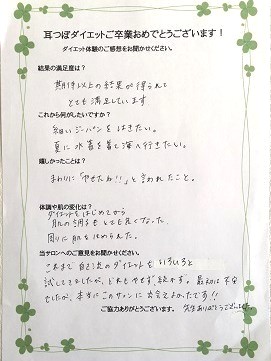 耳つぼダイエットご卒業おめでとうございます！
ダイエット体験のご感想をお聞かせください。
結果の満足度は？
期待以上の結果が得られて
とても満足しています
これから何がしたいですか？
細いジーパンをはきたい。
夏に水着を着て海へ行きたい。
嬉しかったことは？
まわりに「やせたね!!」と言われたこと。
体調や肌の変化は？
ダイエットをはじめてから
肌の調子もとても良くなった。
周りに肌をほめられた。
当サロンへのご意見をお聞かせください。
これまで自己流のダイエットをいろいろと
試してきましたが、どれもやせず続かず。最初は不安
でしたが、本当にこのサロンに出会えてよかったです!!
ご協力ありがとうございます。
先生ありがとうございました